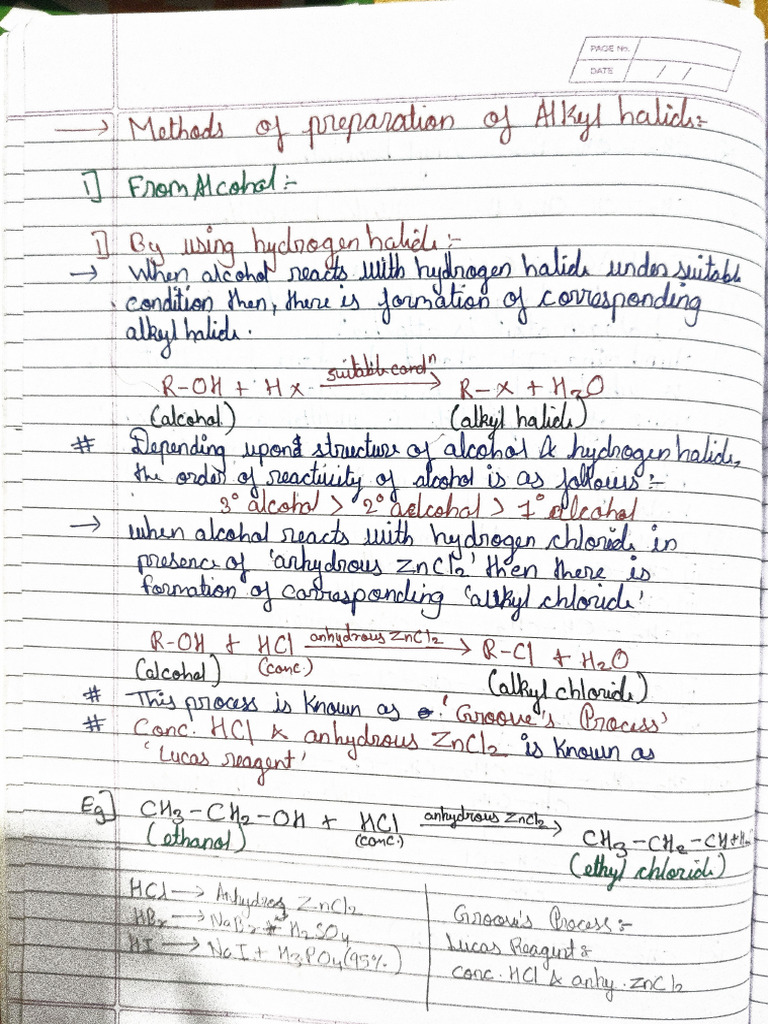 PAGE No.
DATE / /
→ Methods of preparation of Alkyl halide:-
1] From Alcohol:-
1] By using hydrogen halide:-
→ When alcohol reacts with hydrogen halide under suitable
condition then, there is formation of corresponding
alkyl halide.
R-OH + Hx suitable condⁿ → R-x + H₂O
(alcohol) (alkyl halide)
# Depending upon structure of alcohol & hydrogen halide,
the order of reactivity of alcohol is as follows:-
3° alcohol > 2° alcohol > 1° alcohol
→ When alcohol reacts with hydrogen chloride in
presence of 'anhydrous ZnCl₂' then there is
formation of corresponding 'alkyl chloride'
R-OH + HCl anhydrous ZnCl₂ → R-Cl + H₂O
(alcohol) (conc.) (alkyl chloride)
# This process is known as 'Groove's Process'
# Conc. HCl & anhydrous ZnCl₂ is known as
'Lucas reagent'
Eg] CH₃-CH₂-OH + HCl anhydrous ZnCl₂ → CH₃-CH₂-
(ethanol) (conc.) (ethyl chloride)
HCl → Anhydrous ZnCl₂
HBr → NaBr + H₂SO₄
HI → NaI + H₃PO₄ (95%)
Groove's Process:-
Lucas Reagent:
conc. HCl & anhy. ZnCl₂